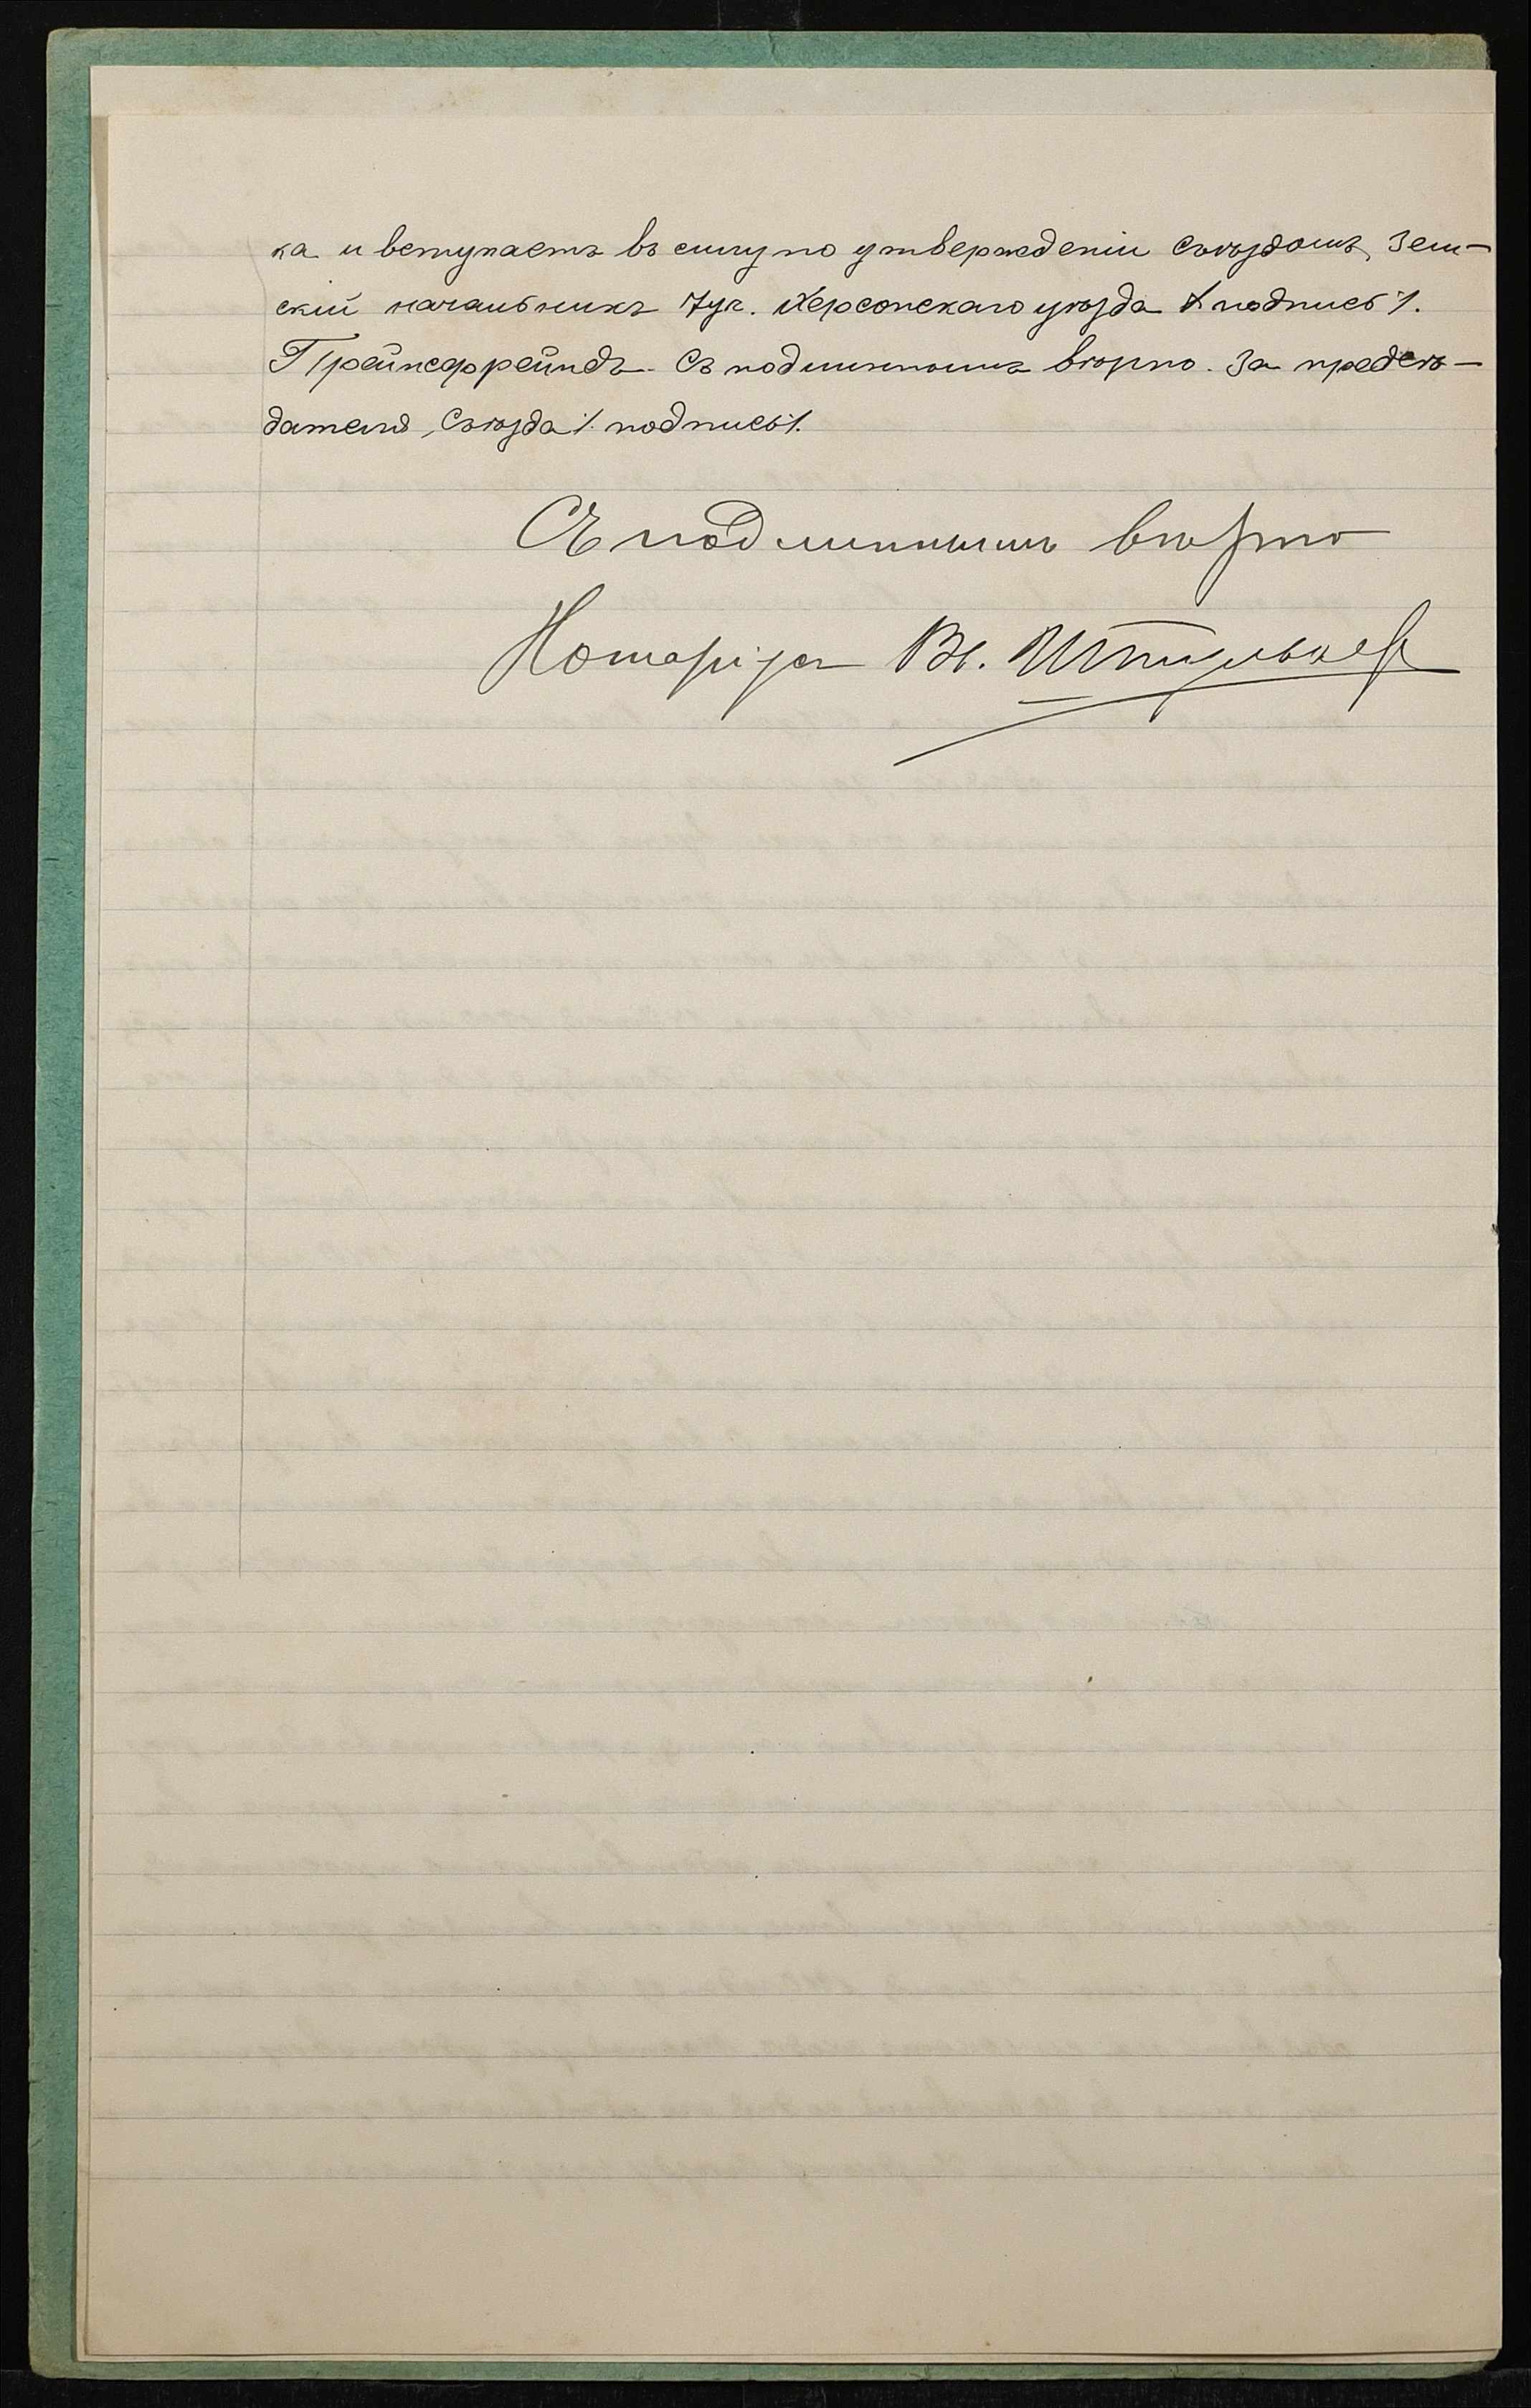 ка и вступаетъ въ силу по утвержденіи Съѣздомъ, Зем-
скій начальникъ 7 уч. Херсонскаго уѣзда /подпись/.
Прейнсфрейндъ. Съ подлиннымъ вѣрно. За предсѣ-
дателя, Съѣзда /. подпись /.
Съ подлиннымъ вѣрно
Нотаріусъ Вл.